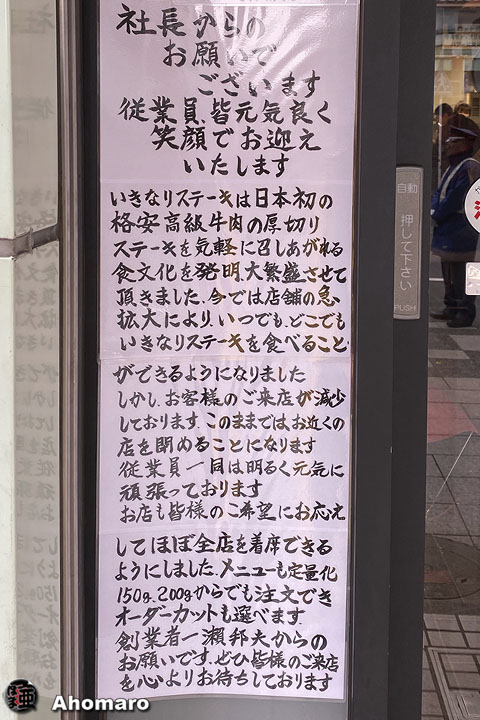 社長からの
お願いで
ございます
従業員、皆元気良く
笑顔でお迎え
いたします
いきなりステーキは日本初の
格安高級牛肉の厚切り
ステーキを気軽に召しあがれる
食文化を発明大繁盛させて
頂きました。今では店舗の急
拡大により、いつでも、どこでも
いきなりステーキを食べること
ができるようになりました
しかし、お客様のご来店が減少
しております。このままではお近くの
店を閉めることになります
従業員一同は明るく元気に
頑張っております
お店も皆様のご希望にお応え
してほぼ全店を着席できる
ようにしました。メニューも定量化
150g、200gからでも注文でき
オーダーカットも選べます。
創業者一瀬邦夫からの
お願いです。ぜひ皆様のご来店
を心よりお待ちしております
自動
押して下さい
PUSH
Ahomaro